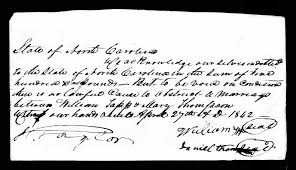 State of North Carolina
We acknowledge our selves indebted
to the State of North Carolina in the sum of two
hundred pounds. But to be void on Condition
there is no lawful Cause to obstruct a Marriage
between William Tapp & Mary Thompson
our hands seals April 27th 1802
William